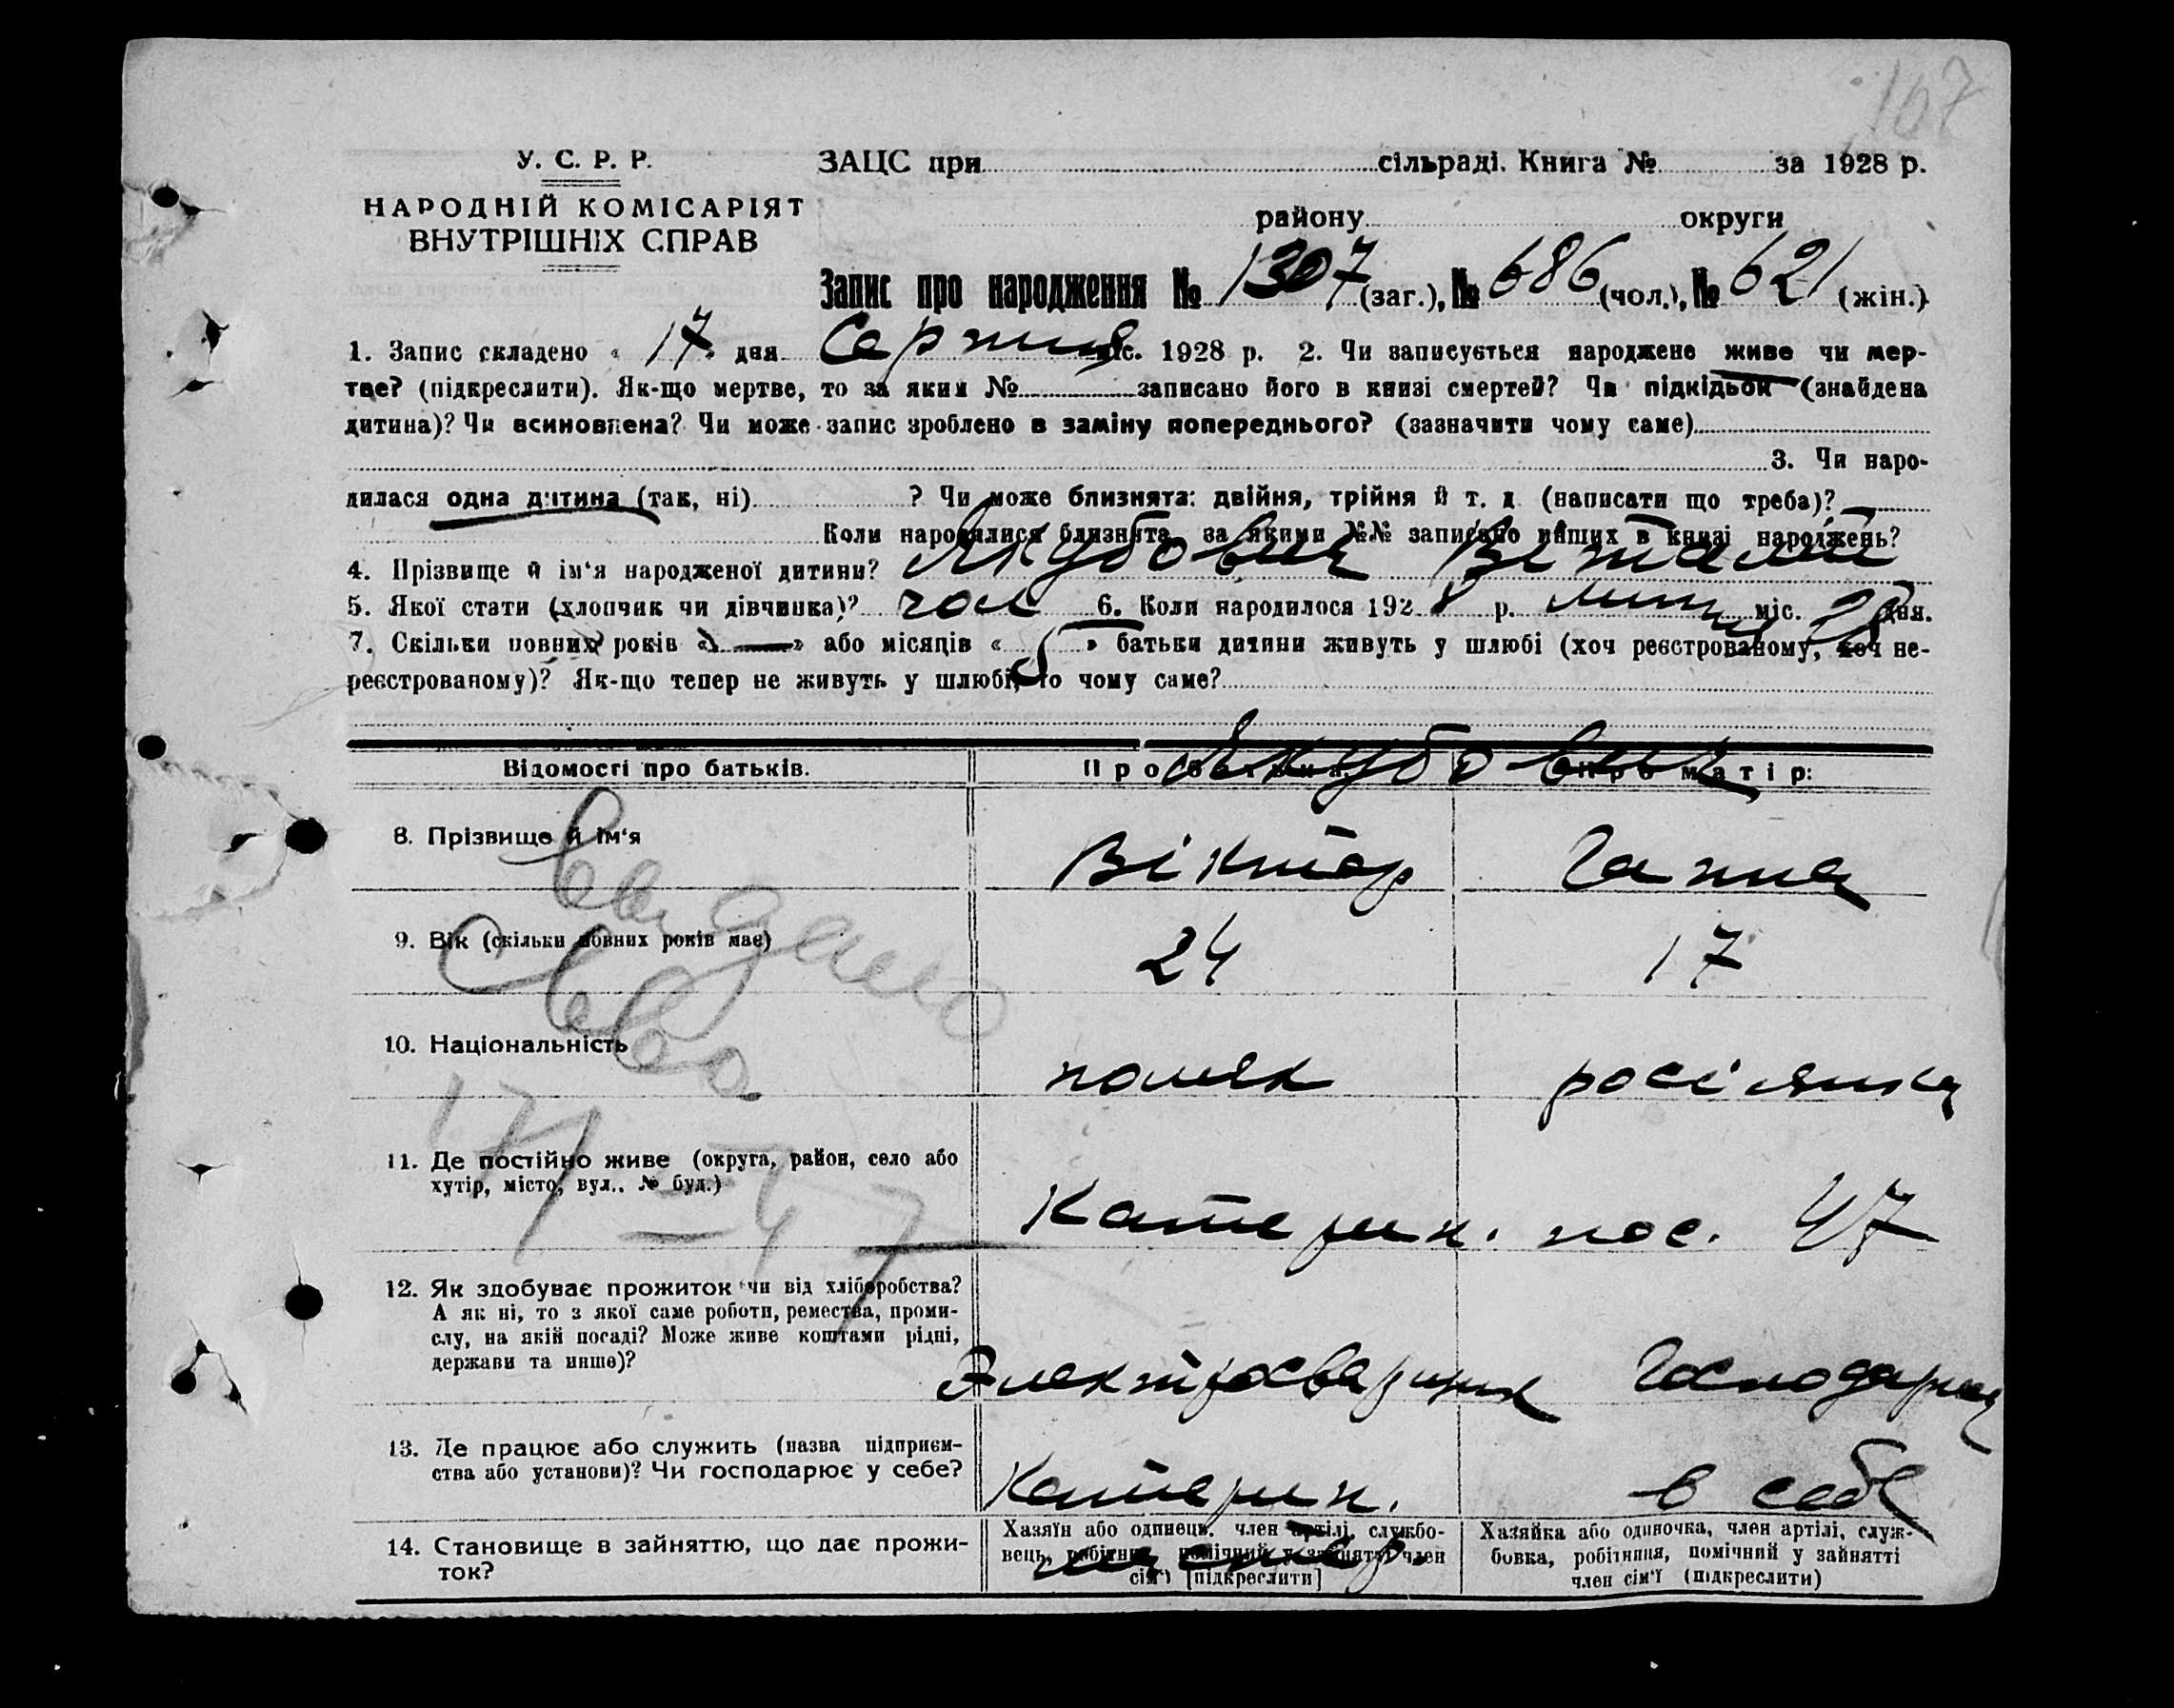 167
У. С. Р. Р.
НАРОДНІЙ КОМІСАРІЯТ
ВНУТРІШНІХ СПРАВ
ЗАЦС при сільраді. Книга № за 1928 р.
району округи
Запис про народження № 1307 (заг.), № 686 (чол.), № 621 (жін.)
1. Запис складено « 17 » дня Серпня міс. 1928 р. 2. Чи записується народжене живе чи мер-
тве? (підкреслити). Як-що мертве, то за яким № записано його в книзі смертей? Чи підкідьок (знайдена
дитина)? Чи всиновлена? Чи може запис зроблено в заміну попереднього? (зазначити чому саме)
3. Чи наро-
дилася одна дитина (так, ні) ? Чи може близнята: двійня, трійня й т. д (написати що треба)?
Коли народилися близнята, за якими №№ записано инших в книзі народжень?
4. Прізвище й ім'я народженої дитини? Якубович Віталій
5. Якої стати (хлопчик чи дівчинка)? чол 6. Коли народилося 1928 р. липня міс. 28 дня.
7. Скільки повних років « — » або місяців « 5 » батьки дитини живуть у шлюбі (хоч реєстрованому, хоч не-
реєстрованому)? Як-що тепер не живуть у шлюбі, то чому саме?
Відомості про батьків. Про батька: Про матір:
Якубович
8. Прізвище й ім'я Віктор Ганна
Видано
9. Вік (скільки повних років має) 24 17
10. Національність поляк росіянка
11. Де постійно живе (округа, район, село або
хутір, місто, вул., № буд.)
Катерин. пос. 47
12. Як здобуває прожиток чи від хліборобства?
А як ні, то з якої саме роботи, ремества, проми-
слу, на якій посаді? Може живе коштами рідні,
держави та инше)?
Электросварщик Господарка
13. Де працює або служить (назва підприєм-
ства або установи)? Чи господарює у себе?
Катерин. в себе
14. Становище в зайняттю, що дає прожи-
ток?
Хазяїн або одинець, член артілі, службо-
вець, робітник, помічний у зайнятті член
сім'ї [підкреслити]
Хазяйка або одиночка, член артілі, служ-
бовка, робітниця, помічний у зайнятті
член сім'ї (підкреслити)